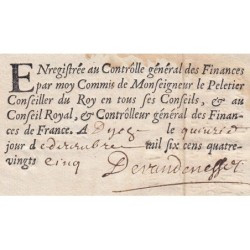 ENregistrée au Contrôlle général des Finances
par moy Commis de Monseigneur le Peletier
Conseiller du Roy en tous ses Conseils, & au
Conseil Royal, & Contrôlleur général des Finan-
ces de France. A le
jour de mil six cens quatre-
vingts cinq